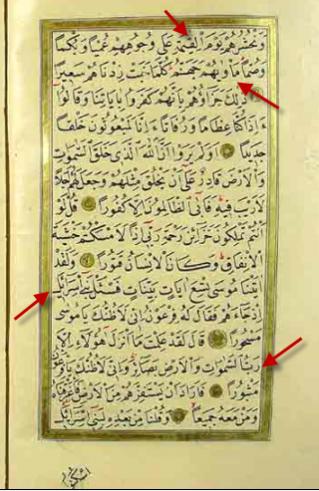 وَنَحْشُرُهُمْ يَوْمَ الْقِيٰمَةِ عَلٰى وُجُوهِهِمْ عُمْيًا وَبُكْمًا
وَصُمًّا مَأْوٰيهُمْ جَهَنَّمُ كُلَّمَا خَبَتْ زِدْنَاهُمْ سَعِيرًا
ذٰلِكَ جَزَاؤُهُمْ بِأَنَّهُمْ كَفَرُوا بِاٰيَاتِنَا وَقَالُوا
ءَاِذَا كُنَّا عِظَامًا وَرُفَاتًا ءَاِنَّا لَمَبْعُوثُونَ خَلْقًا
جَدِيدًا اَوَلَمْ يَرَوْا اَنَّ اللّٰهَ الَّذِي خَلَقَ السَّمٰوَاتِ
وَالْاَرْضَ قَادِرٌ عَلٰى اَنْ يَخْلُقَ مِثْلَهُمْ وَجَعَلَ لَهُمْ اَجَلًا
لَا رَيْبَ فِيهِ فَاَبَى الظَّالِمُونَ اِلَّا كُفُورًا قُلْ لَوْ
اَنْتُمْ تَمْلِكُونَ خَزَائِنَ رَحْمَةِ رَبِّي اِذًا لَاَمْسَكْتُمْ خَشْيَةَ
الْاِنْفَاقِ وَكَانَ الْاِنْسَانُ قَتُورًا وَلَقَدْ
اٰتَيْنَا مُوسٰى تِسْعَ اٰيَاتٍ بَيِّنَاتٍ فَسْئَلْ بَنِي اِسْرَائِيلَ
اِذْ جَاءَهُمْ فَقَالَ لَهُ فِرْعَوْنُ اِنِّي لَاَظُنُّكَ يَا مُوسٰى
مَسْحُورًا قَالَ لَقَدْ عَلِمْتَ مَا اَنْزَلَ هٰؤُلَاءِ اِلَّا
رَبُّ السَّمٰوَاتِ وَالْاَرْضِ بَصَائِرَ وَاِنِّي لَاَظُنُّكَ يَا فِرْعَوْنُ
مَثْبُورًا فَاَرَادَ اَنْ يَسْتَفِزَّهُمْ مِنَ الْاَرْضِ فَاَغْرَقْنَاهُ
وَمَنْ مَعَهُ جَمِيعًا وَقُلْنَا مِنْ بَعْدِهِ لِبَنِي اِسْرَائِيلَ
اسكنوا